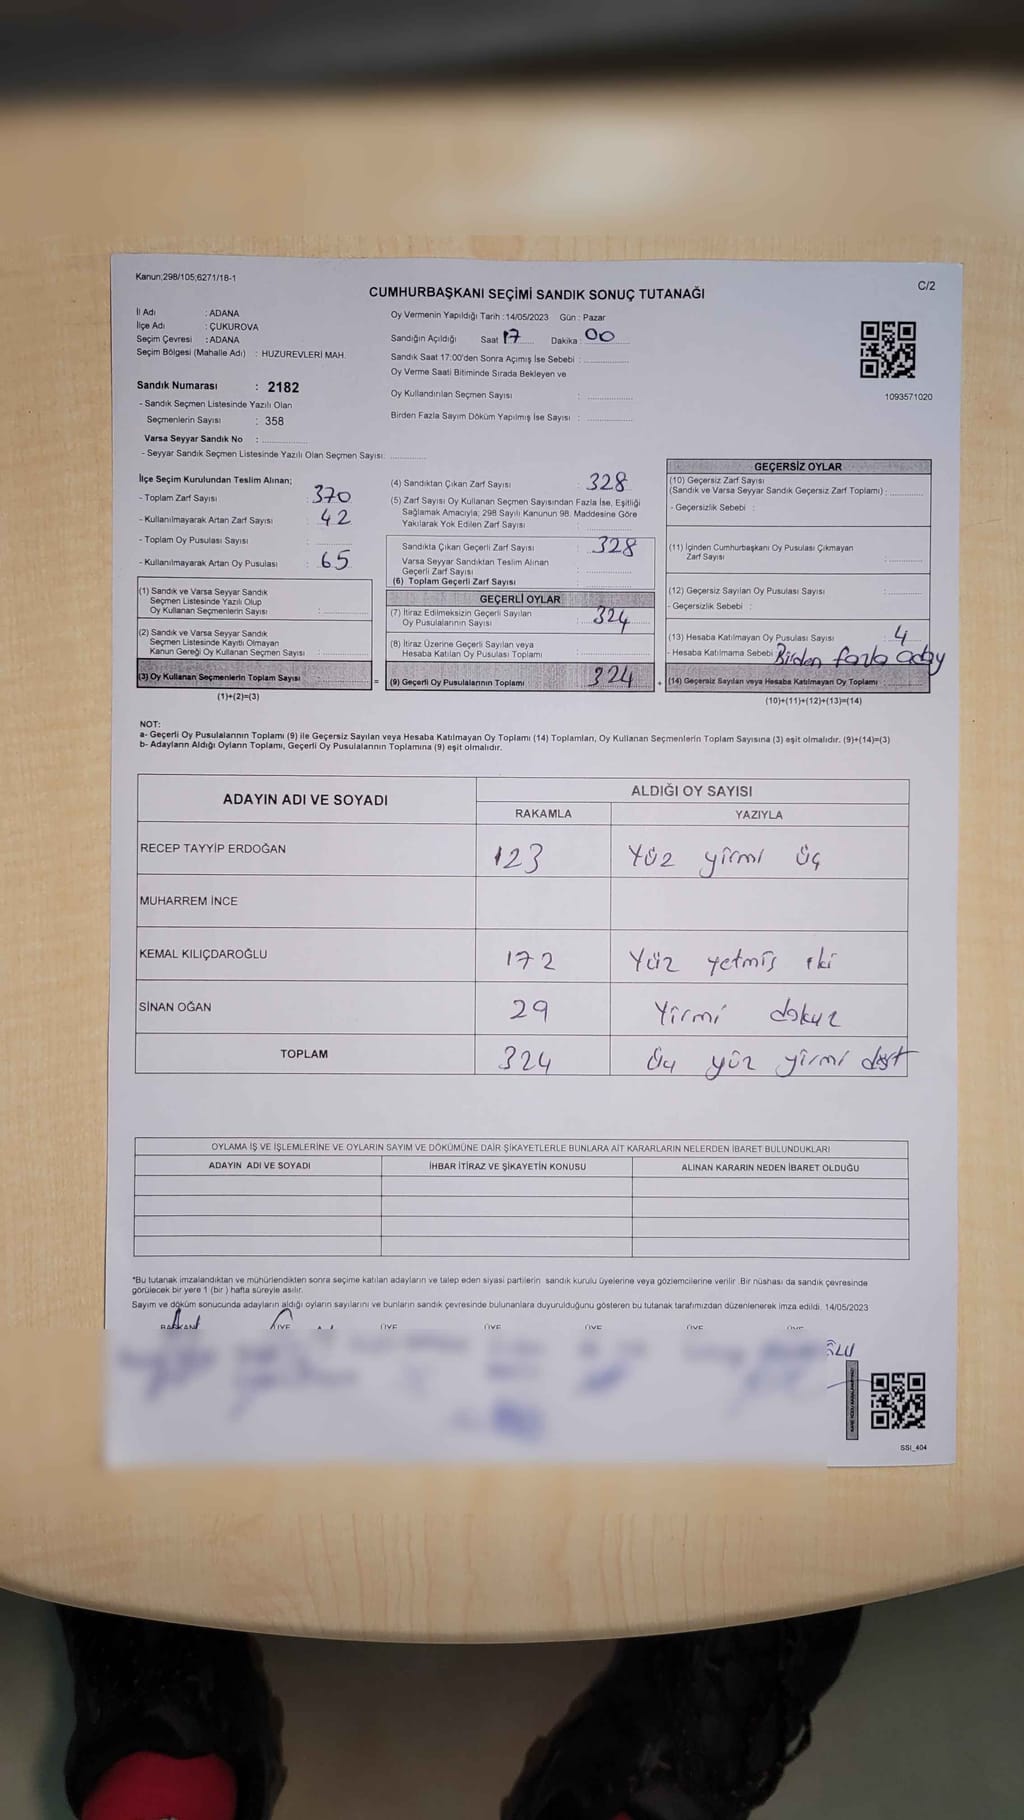 Kanun;298/105;6271/18-1
C/2
CUMHURBAŞKANI SEÇİMİ SANDIK SONUÇ TUTANAĞI
İl Adı : ADANA
İlçe Adı : ÇUKUROVA
Seçim Çevresi : ADANA
Seçim Bölgesi (Mahalle Adı) : HUZUREVLERİ MAH.
Sandık Numarası : 2182
- Sandık Seçmen Listesinde Yazılı Olan
Seçmenlerin Sayısı : 358
Varsa Seyyar Sandık No :
- Seyyar Sandık Seçmen Listesinde Yazılı Olan Seçmen Sayısı:
Oy Vermenin Yapıldığı Tarih :14/05/2023 Gün : Pazar
Sandığın Açıldığı Saat 17 Dakika : 00
Sandık Saat 17:00'den Sonra Açımış İse Sebebi :
Oy Verme Saati Bitiminde Sırada Bekleyen ve
Oy Kullandırılan Seçmen Sayısı :
Birden Fazla Sayım Döküm Yapılmış İse Sayısı :
1093571020
İlçe Seçim Kurulundan Teslim Alınan;
- Toplam Zarf Sayısı : 370
- Kullanılmayarak Artan Zarf Sayısı : 42
- Toplam Oy Pusulası Sayısı :
- Kullanılmayarak Artan Oy Pusulası : 65
(1) Sandık ve Varsa Seyyar Sandık
Seçmen Listesinde Yazılı Olup
Oy Kullanan Seçmenlerin Sayısı :
(2) Sandık ve Varsa Seyyar Sandık
Seçmen Listesinde Kayıtlı Olmayan
Kanun Gereği Oy Kullanan Seçmen Sayısı :
(3) Oy Kullanan Seçmenlerin Toplam Sayısı
(1)+(2)=(3)
(4) Sandıktan Çıkan Zarf Sayısı : 328
(5) Zarf Sayısı Oy Kullanan Seçmen Sayısından Fazla İse, Eşitliği
Sağlamak Amacıyla; 298 Sayılı Kanunun 98. Maddesine Göre
Yakılarak Yok Edilen Zarf Sayısı :
Sandıkta Çıkan Geçerli Zarf Sayısı : 328
Varsa Seyyar Sandıktan Teslim Alınan
Geçerli Zarf Sayısı
(6) Toplam Geçerli Zarf Sayısı :
GEÇERLİ OYLAR
(7) İtiraz Edilmeksizin Geçerli Sayılan
Oy Pusulalarının Sayısı : 324
(8) İtiraz Üzerine Geçerli Sayılan veya
Hesaba Katılan Oy Pusulası Toplamı :
= (9) Geçerli Oy Pusulalarının Toplamı 324 +
GEÇERSİZ OYLAR
(10) Geçersiz Zarf Sayısı
(Sandık ve Varsa Seyyar Sandık Geçersiz Zarf Toplamı) :
- Geçersizlik Sebebi :
(11) İçinden Cumhurbaşkanı Oy Pusulası Çıkmayan
Zarf Sayısı :
(12) Geçersiz Sayılan Oy Pusulası Sayısı :
- Geçersizlik Sebebi :
(13) Hesaba Katılmayan Oy Pusulası Sayısı : 4
- Hesaba Katılmama Sebebi : Birden fazla aday
(14) Geçersiz Sayılan veya Hesaba Katılmayan Oy Toplamı :
(10)+(11)+(12)+(13)=(14)
NOT:
a- Geçerli Oy Pusulalarının Toplamı (9) ile Geçersiz Sayılan veya Hesaba Katılmayan Oy Toplamı (14) Toplamları, Oy Kullanan Seçmenlerin Toplam Sayısına (3) eşit olmalıdır. (9)+(14)=(3)
b- Adayların Aldığı Oyların Toplamı, Geçerli Oy Pusulalarının Toplamına (9) eşit olmalıdır.
ADAYIN ADI VE SOYADI ALDIĞI OY SAYISI
RAKAMLA YAZIYLA
RECEP TAYYİP ERDOĞAN 123 Yüz yirmi üç
MUHARREM İNCE
KEMAL KILIÇDAROĞLU 172 Yüz yetmiş iki
SİNAN OĞAN 29 Yirmi dokuz
TOPLAM 324 Üç yüz yirmi dört
OYLAMA İŞ VE İŞLEMLERİNE VE OYLARIN SAYIM VE DÖKÜMÜNE DAİR ŞİKAYETLERLE BUNLARA AİT KARARLARIN NELERDEN İBARET BULUNDUKLARI
ADAYIN ADI VE SOYADI İHBAR İTİRAZ VE ŞİKAYETİN KONUSU ALINAN KARARIN NEDEN İBARET OLDUĞU
*Bu tutanak imzalandıktan ve mühürlendikten sonra seçime katılan adayların ve talep eden siyasi partilerin sandık kurulu üyelerine veya gözlemcilerine verilir. Bir nüshası da sandık çevresinde
görülecek bir yere 1 (bir ) hafta süreyle asılır.
Sayım ve döküm sonucunda adayların aldığı oyların sayılarını ve bunların sandık çevresinde bulunanlara duyurulduğunu gösteren bu tutanak tarafımızdan düzenlenerek imza edildi. 14/05/2023
BAŞKAN ÜYE ÜYE ÜYE ÜYE ÜYE ÜYE
SSI_404